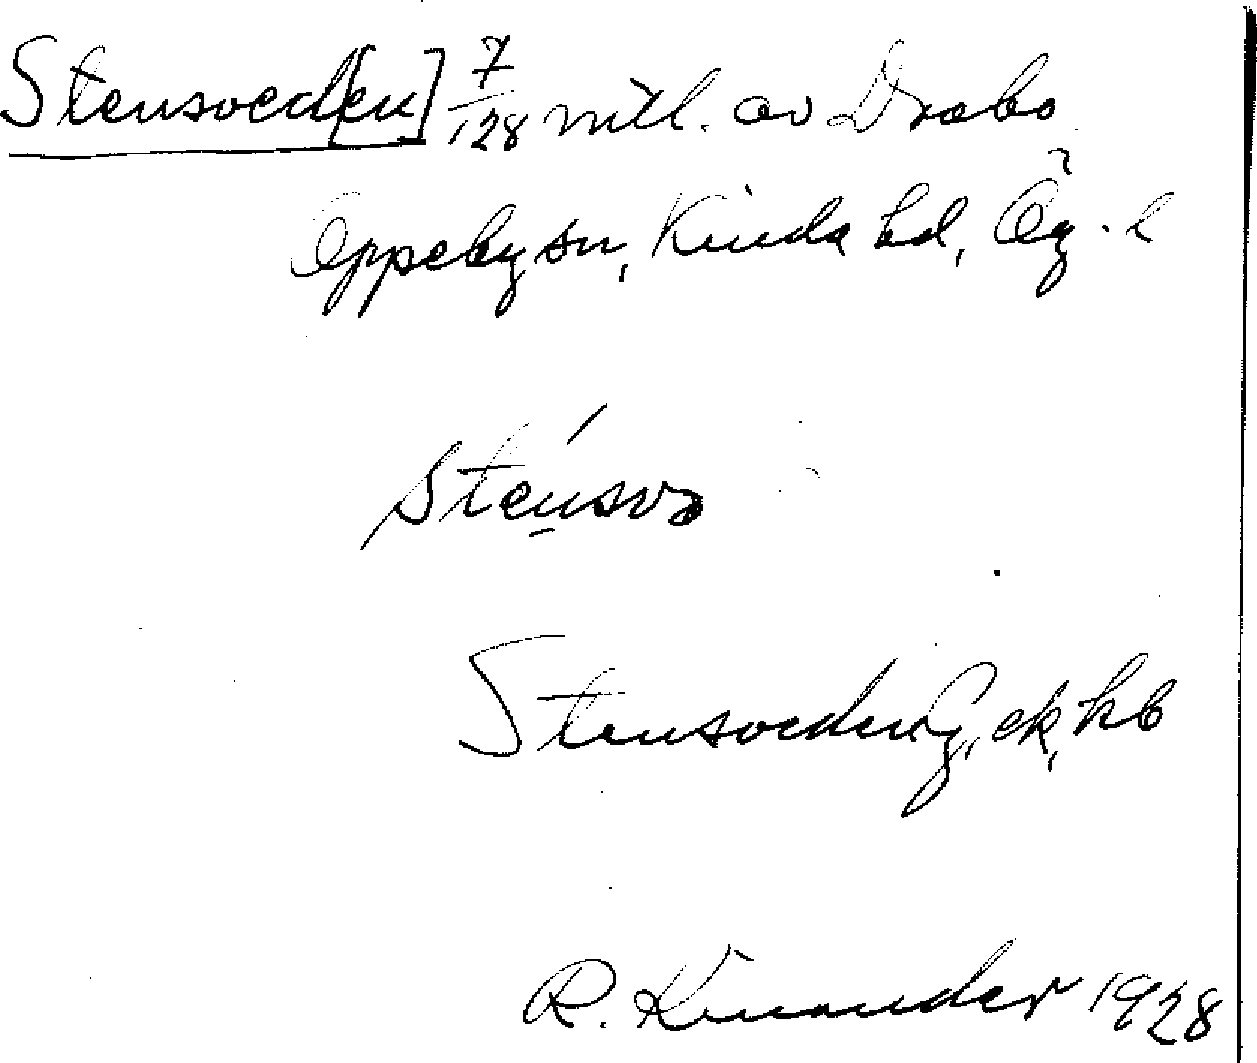 Stensved[en] 7/128 mtl. av Drabo
Oppeby sn, Kinda hd, Ög. l
Stensvə
Stensveden G, ek, hb
R. Kinander 1928